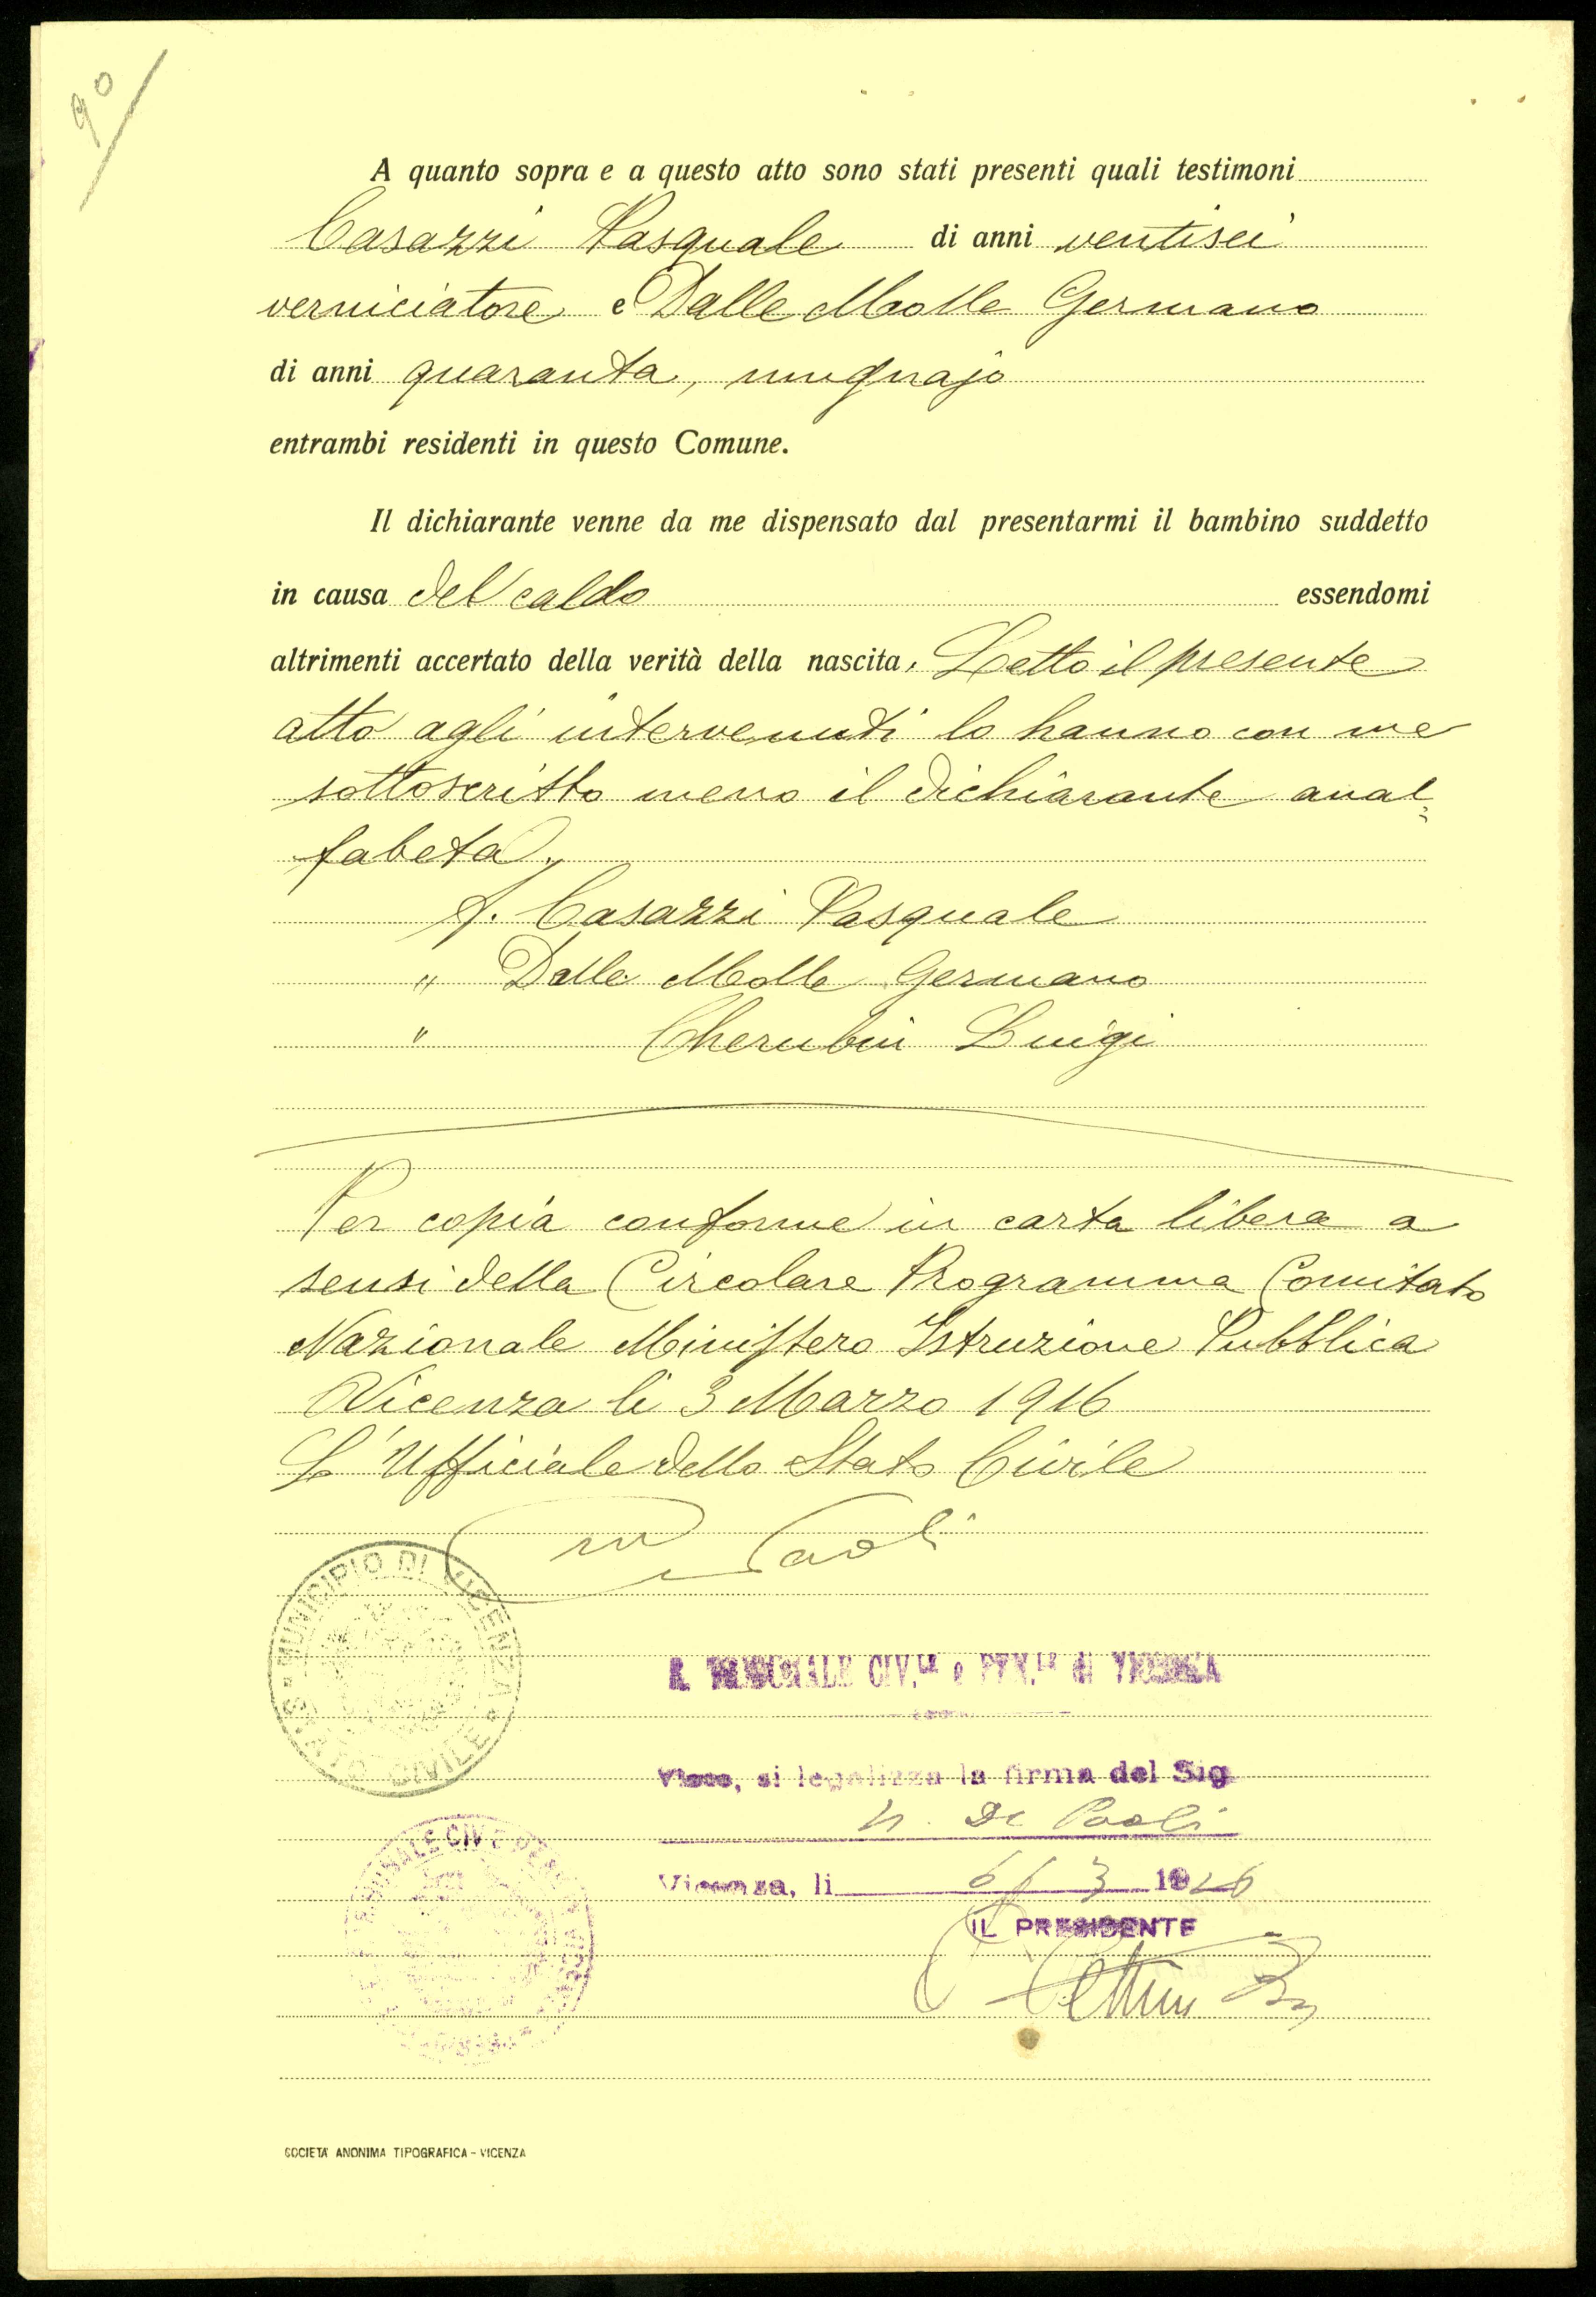 90
A quanto sopra e a questo atto sono stati presenti quali testimoni
Casazzi Pasquale di anni ventisei
verniciatore e Dalle Molle Germano
di anni quaranta, mugnajo
entrambi residenti in questo Comune.
Il dichiarante venne da me dispensato dal presentarmi il bambino suddetto
in causa del caldo essendomi
altrimenti accertato della verità della nascita, Letto il presente
atto agli intervenuti lo hanno con me
sottoscritto meno il dichiarante anal=
fabeta.
f. Casazzi Pasquale
" Dalle Molle Germano
" Cherubin Luigi
Per copia conforme in carta libera a
sensi della Circolare Programma Comitato
Nazionale Ministero Istruzione Pubblica
Vicenza li 3 Marzo 1916
L'Ufficiale dello Stato Civile
Paoli
MUNICIPIO DI VICENZA
STATO CIVILE
R. TRIBUNALE CIV.LE e PEN.LE di VICENZA
Visto, si legalizza la firma del Sig
De Paoli
Vicenza, li 6/3 1916
IL PRESIDENTE
TRIBUNALE CIV E PEN
SOCIETA' ANONIMA TIPOGRAFICA - VICENZA